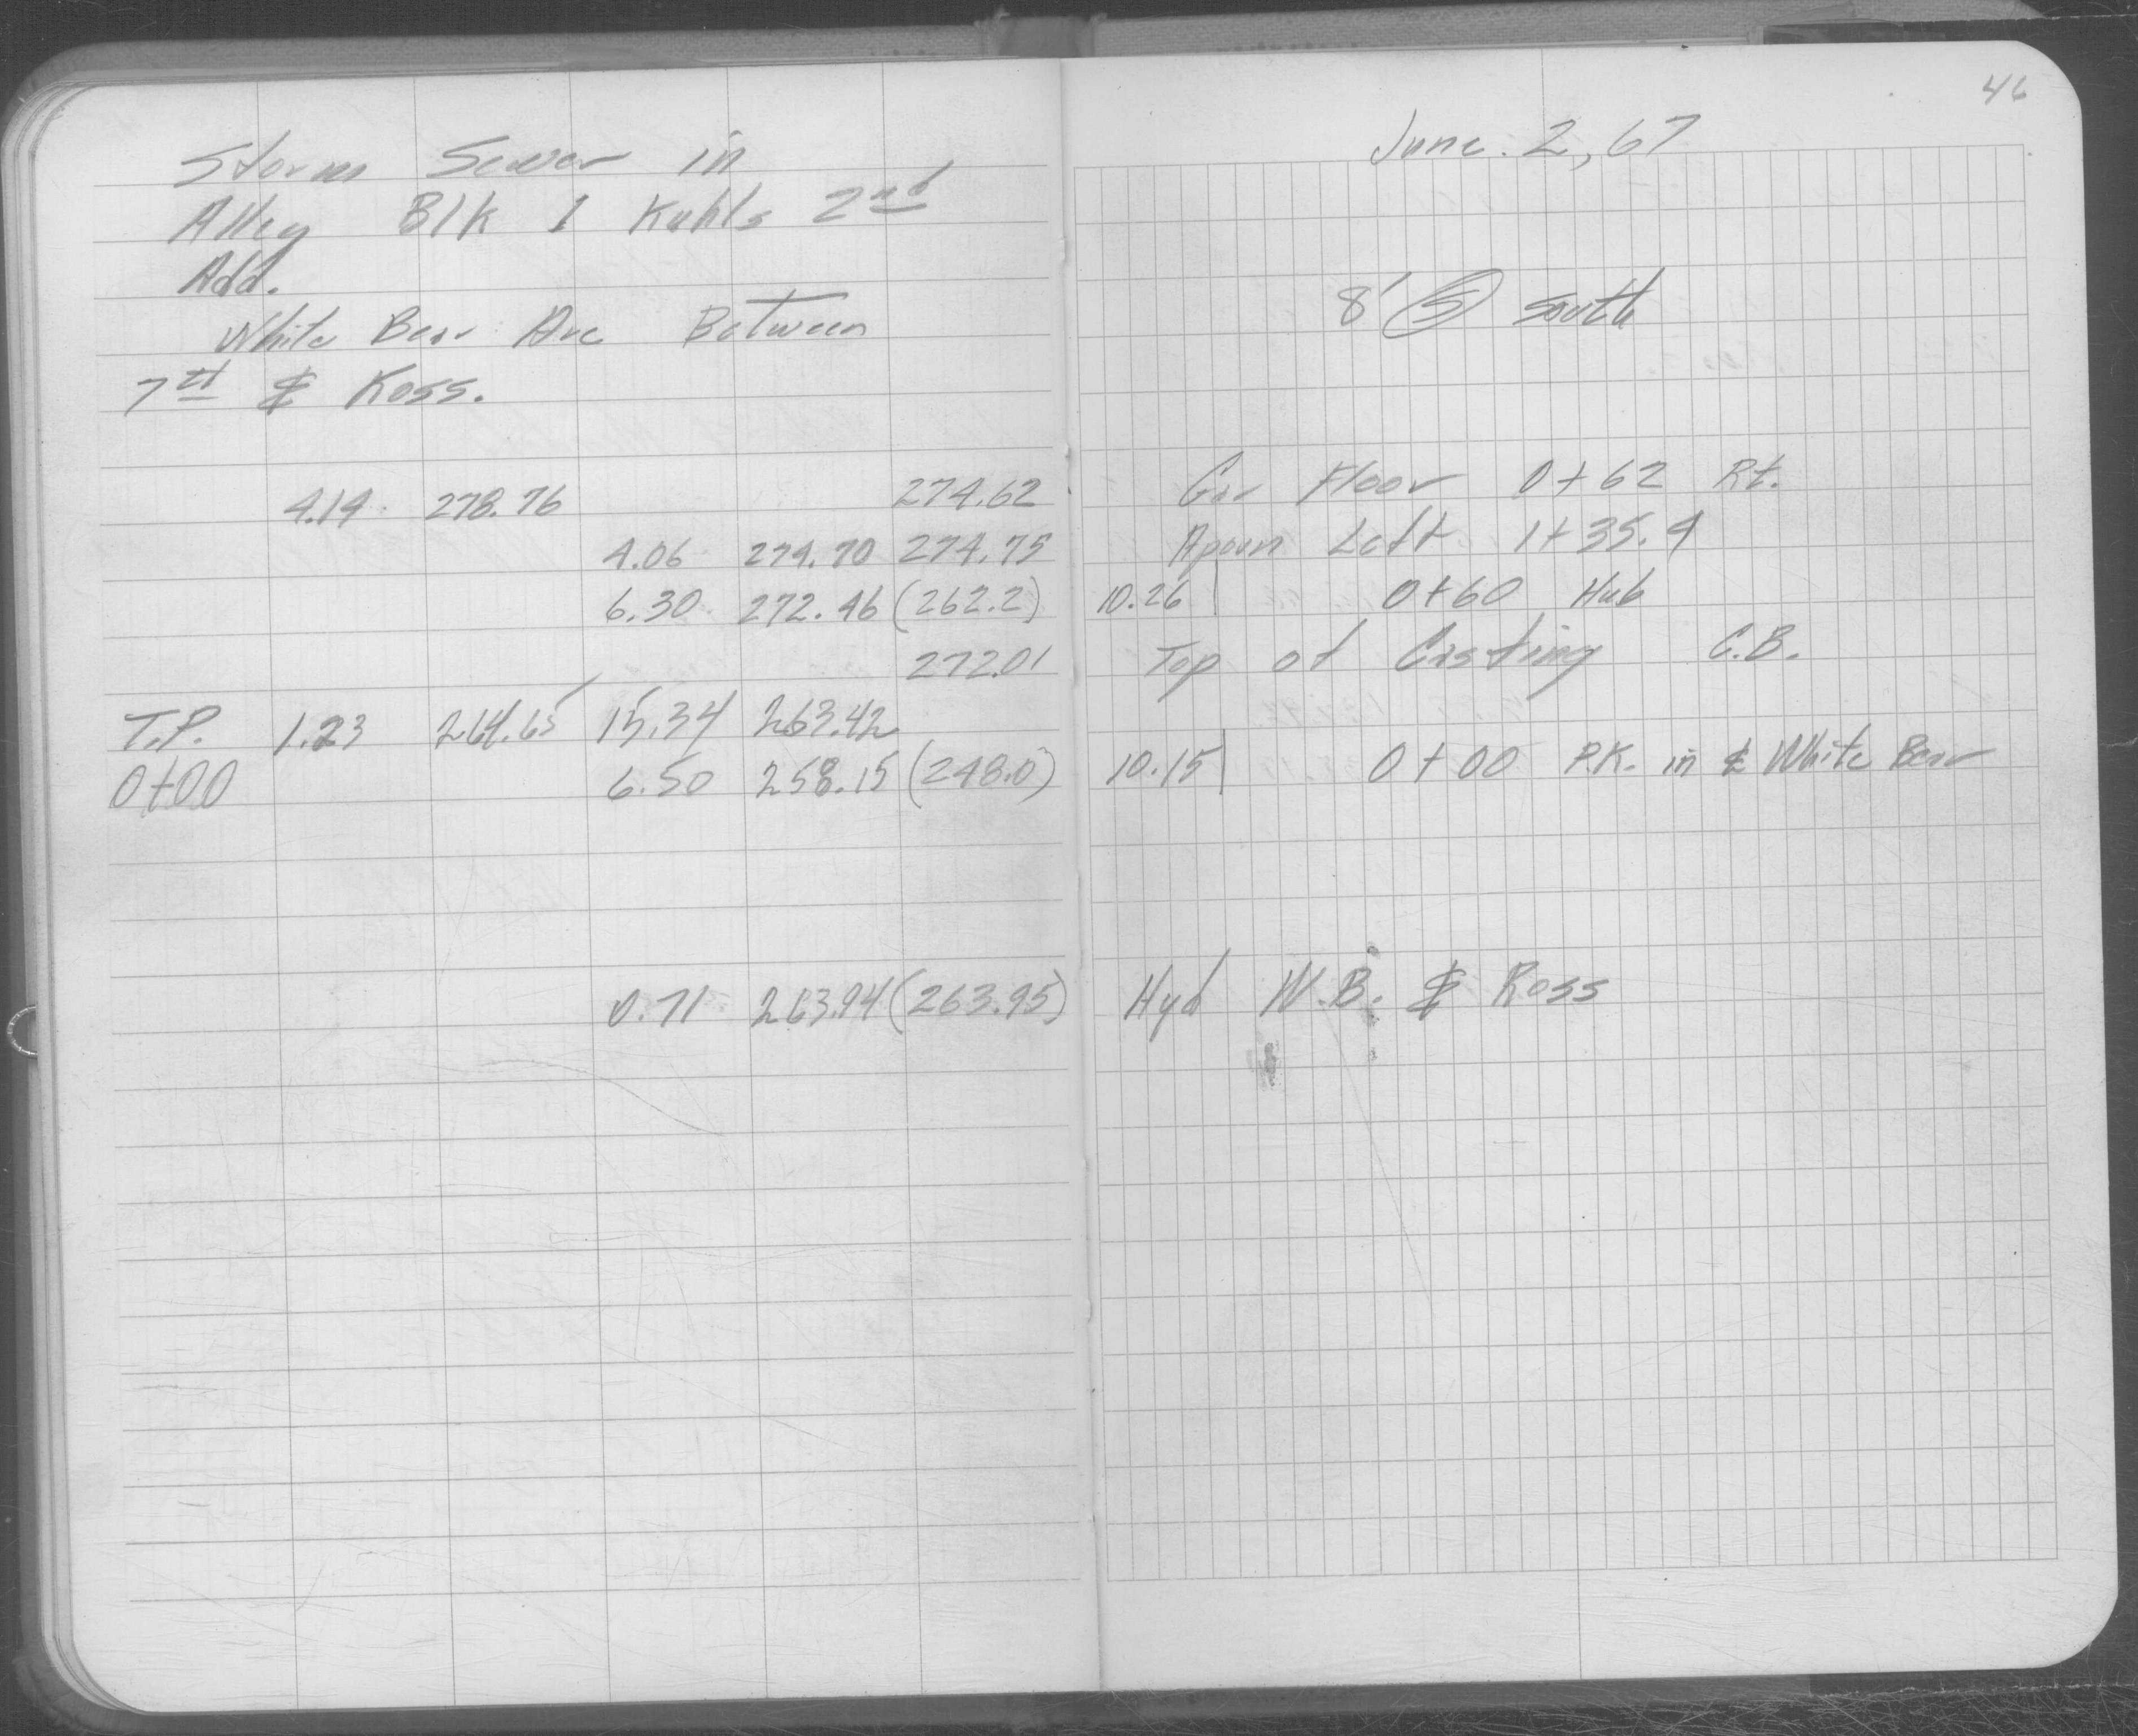 46
Storm Sewer in
Alley Blk 1 Kuhls 2nd
Add.
White Bear Ave Between
7th & Ross.
June. 2, 67
8' (S) South
4.14 278.76 274.62 Gar Floor 0+62 Rt.
4.06 274.70 274.75 Apron Left 1+35.4
6.30 272.46 (262.2) 10.26 0+60 Hub
272.01 Top of Casting C.B.
T.P. 1.23 264.65 15.34 263.42
0+00 6.50 258.15 (248.0) 10.15 0+00 P.K. in ℄ White Bear
0.71 263.94 (263.95) Hyd W.B. & Ross